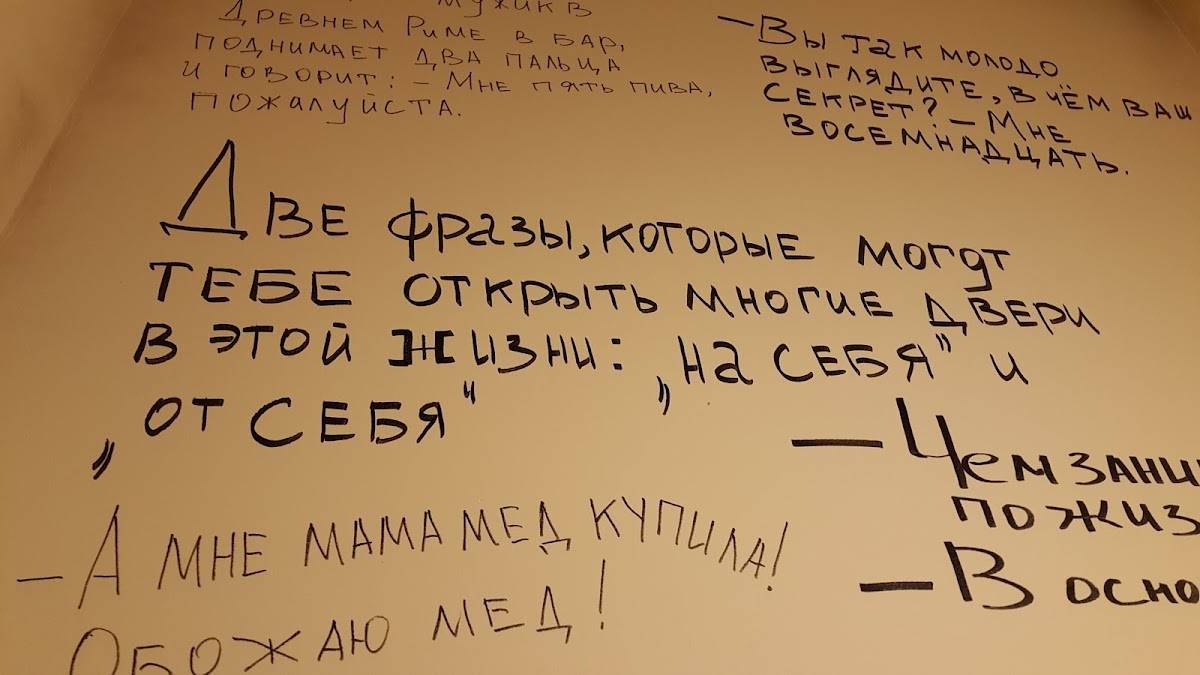 мужик в
Древнем Риме в бар,
поднимает два пальца
и говорит: – Мне пять пива,
пожалуйста.
– Вы так молодо
выглядите, в чём ваш
секрет? – Мне
восемнадцать.
Две фразы, которые могут
тебе открыть многие двери
в этой жизни: „на себя” и
„от себя“
– Чем зани
по жиз
– В осно
– А мне мама мед купила!
Обожаю мед!